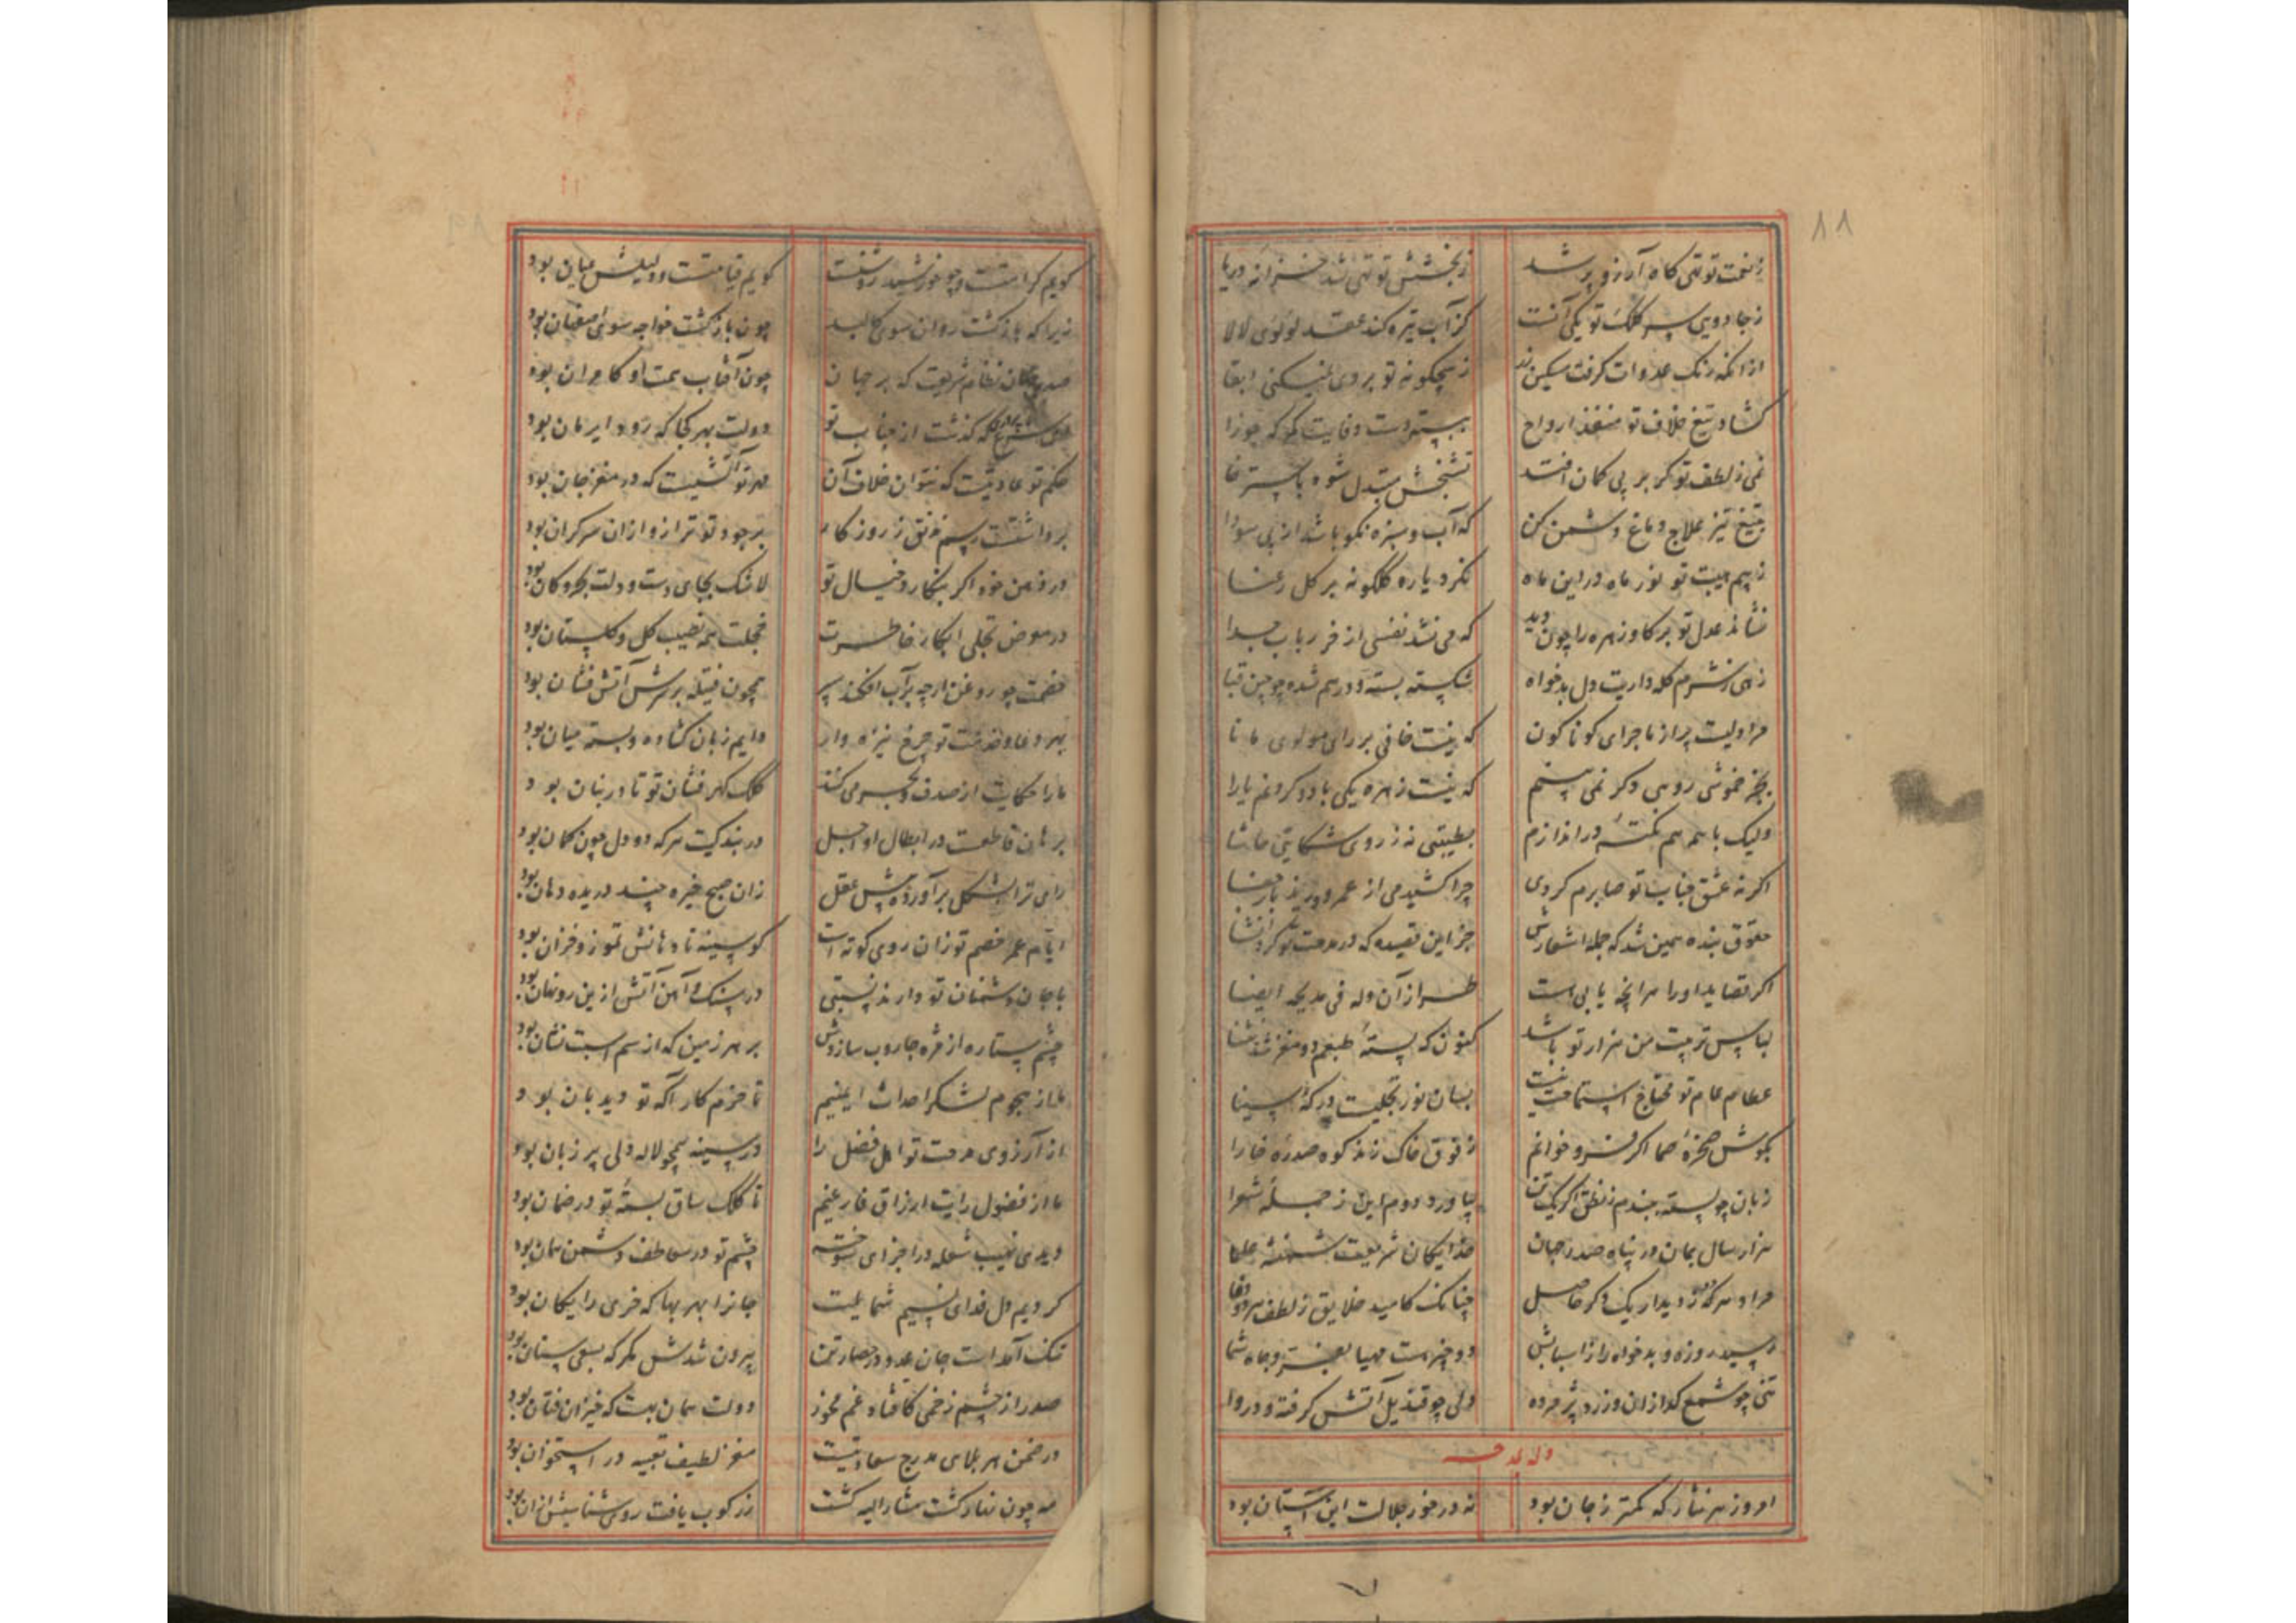 ۸۸
ز نعمت تو تهی کاه آرزو پر شد ز بخشش تو تهی شد خزانه دریا
ز جادویی سر کلک تو یکی آنست کز آب تیره کند عقد لولوی لالا
از آنکه زنگ عداوت گرفت سکین ز هیچگونه تو بر وی نمیکنی ابقا
گشاد تیغ خلاف تو منفذ ارواح ببسته دست وفایت کمر که جوزا
نمی ز لطف تو گر بر پی کمان افتد تشنجش متبدل شود باسترخا
بتیغ تیز علاج دماغ دشمن کن که آب و سبزه نکو باشد از پی سودا
ز بیم هیبت تو نور ماه در این ماه نکرد یاره گلگونه بر گل رعنا
نشاند عدل تو بر گاو زهره را چون دید که می نشد نفسی از خر رباب جدا
زهی ز شرم کله داریت دل بدخواه شکسته بسته و در هم شده چو چین قبا
مرا دلیست پر از ماجرای گوناگون که نیست خافی بر رای مولوی مانا
بجز خموشی رویی دگر نمی بینم که نیست زهره یکی با دو کردنم یارا
ولیک با همه هم نکته در اندازم بطیبتی نه ز روی شکایتی حاشا
اگر نه عشق جناب تو صابرم کردی چرا کشیدمی از عمر و زید بار جفا
حقوق بنده همین شد که جمله اشعارش جز این قصیده که در مدحت تو کرد انشا
اگر قصاید او را هر آنچه یابی هست طراز آن وله فی مدیحه ایضا
لباس تربیت من هزار تو باشد کنون که پسته طبعم دو مغز شد ثنا
عطای عام تو محتاج استماحت نیست بسان نور تجلیست در که سینا
بگوش صخره صما اگر فرو خوانم ز فوق خاک زند کوه صدره خارا
زبان چو پسته ببندم ز نطق اگر یک تن بیاورد دوم این ز جمله شعرا
هزار سال بمان در پناه صدر جهان خدایگان شریعت شهنشه علما
مراد هر که ز دیدار یک دگر حاصل چنانک کامید خلایق ز لطف هر دو وفا
رسید روزه و بدخواه را ز اسبابش دو چیز هست مهیا بعز و جاه شما
تنی چو شمع گدازان و زرد و پژمرده دلی چو قندیل آتش گرفته و دروا
وله یمدحه
امروز هر نثار که کمتر ز جان بود نه در خور جلالت این آستان بود
۸۹
گویم کرامتست و چو خورشید روشنست گویم قیامتست و دلیلش عیان بود
زیرا که بازگشت روان سوی کالبد چون بازگشت خواجه سوی اصفهان بود
صدر جهان نظام شریعت که بر جهان چون آفتاب همت او کامران بود
که گذشت از جناب تو دولت بهر کجا که رود ایرمان بود
حکم تو عادتیست که نتوان خلاف آن مهر تو آتشیست که در مغز جان بود
برداشتست رسم ز روزگار بر جود تو ترازو از آن سرگران بود
در ذهن خود اگر بنگارد خیال تو لاشک بجای دست و دلت بحر و کان بود
در معرض تجلی ابکار خاطرت خجلت همه نصیب گل و گلستان بود
خصمت چو روغن ارچه بر آب افکند سپر همچون فتیله بر سرش آتش فشان بود
بهر دعا و خدمت تو چرخ نیزه وار دایم زبان گشاده و بسته میان بود
ما را حکایت از صدف و بحر می کند کلک گهر فشان تو تا در بنان بود
برهان قاطعست در ابطال او اجل در بندگیت هر که دو دل چون کمان بود
رای ترا بشکل برآورد پیش عقل زان صبح خیره چند دریده دهان بود
ایام عمر خصم تو زان روی کوته است کو سینه تا دهانش تموز و خزان بود
با جان دشمنان تو دارند نسبتی در سنگ و آهن آتش ازین رو نهان بود
چشم ستاره از مژه جاروب سازدش بر هر زمین که از سم اسبت نشان بود
ما از هجوم لشکر احداث ایمنیم تا حزم کار آگه تو دیدبان بود
از آرزوی مدحت تو اهل فضل را در سینه همچو لاله دلی پر زبان بود
ما از فضول رایت ارزاق فارغیم تا کلک ساق بسته تو در ضمان بود
دیدی نهیب شعله در اجزای سوخته چشم تو در عواطف دشمن همان بود
کردیم دل فدای نسیم شمایلت جانرا بهر بها که خری رایگان بود
تنگ آمداست جان عدو در حصار تن بیرون شدش مگر که بسعی سنان بود
صدرا ز چشم زخمی کافتاد غم مخور دولت همان بهست که خیزان فتان بود
در ضمن هر بلایی مدرج سعادتیست مغز لطیف تعبیه در استخوان بود
مه چون نزار گشت مشار الیه گشت زر کوب یافت روی شناسیش از آن بود